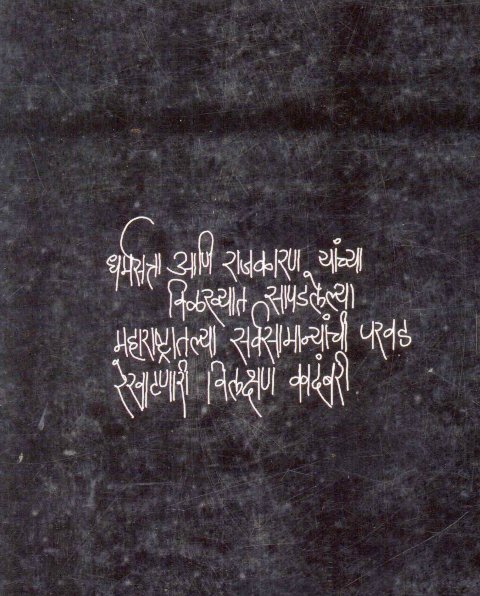 धर्मसत्ता आणि राजकारण यांच्या
विळख्यात सापडलेल्या
महाराष्ट्रातल्या सर्वसामान्यांची परवड
रेखाटणारी विलक्षण कादंबरी